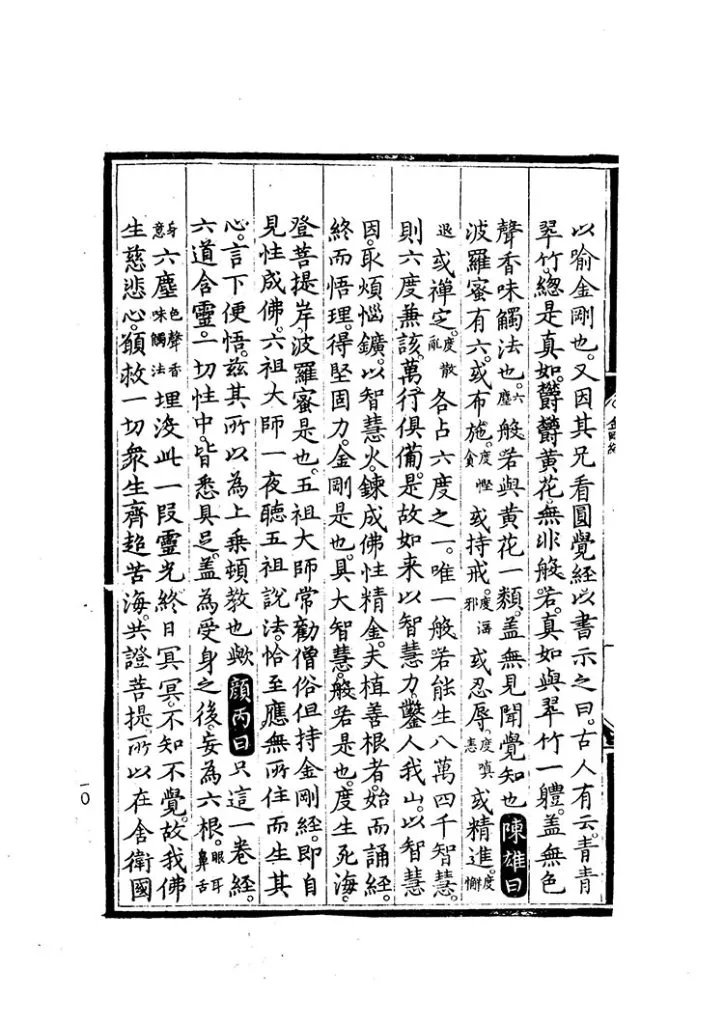 以喻金剛也。又因其兄看圓覺經以書示之曰。古人有云。青青
翠竹。總是真如。欝欝黃花。無非般若。真如與翠竹一體。蓋無色
聲香味觸法也。六塵般若與黃花一類。蓋無見聞覺知也 陳雄曰
波羅蜜有六。或布施。度慳貪或持戒。度淫邪或忍辱。度嗔恚或精進。度懈
退或禪定。度散亂各占六度之一。唯一般若能生八萬四千智慧。
則六度兼該。萬行俱備。是故如來以智慧力。鑿人我山。以智慧
因。取煩惱鑛。以智慧火。鍊成佛性精金。夫植善根者。始而誦經。
終而悟理。得堅固力。金剛是也。具大智慧。般若是也。度生死海。
登菩提岸。波羅蜜是也。五祖大師常勸僧俗但持金剛經。即自
見性成佛。六祖大師一夜聽五祖說法。恰至應無所住而生其
心。言下便悟。茲其所以為上乘頓教也歟 顏丙曰 只這一卷經。
六道含靈。一切性中。皆悉具足。蓋為受身之後。妄為六根。眼耳鼻舌
身意六塵色聲香味觸法埋沒此一段靈光。終日冥冥。不知不覺。故我佛
生慈悲心。願救一切衆生齊超苦海。共證菩提。所以在舍衛國
一〇